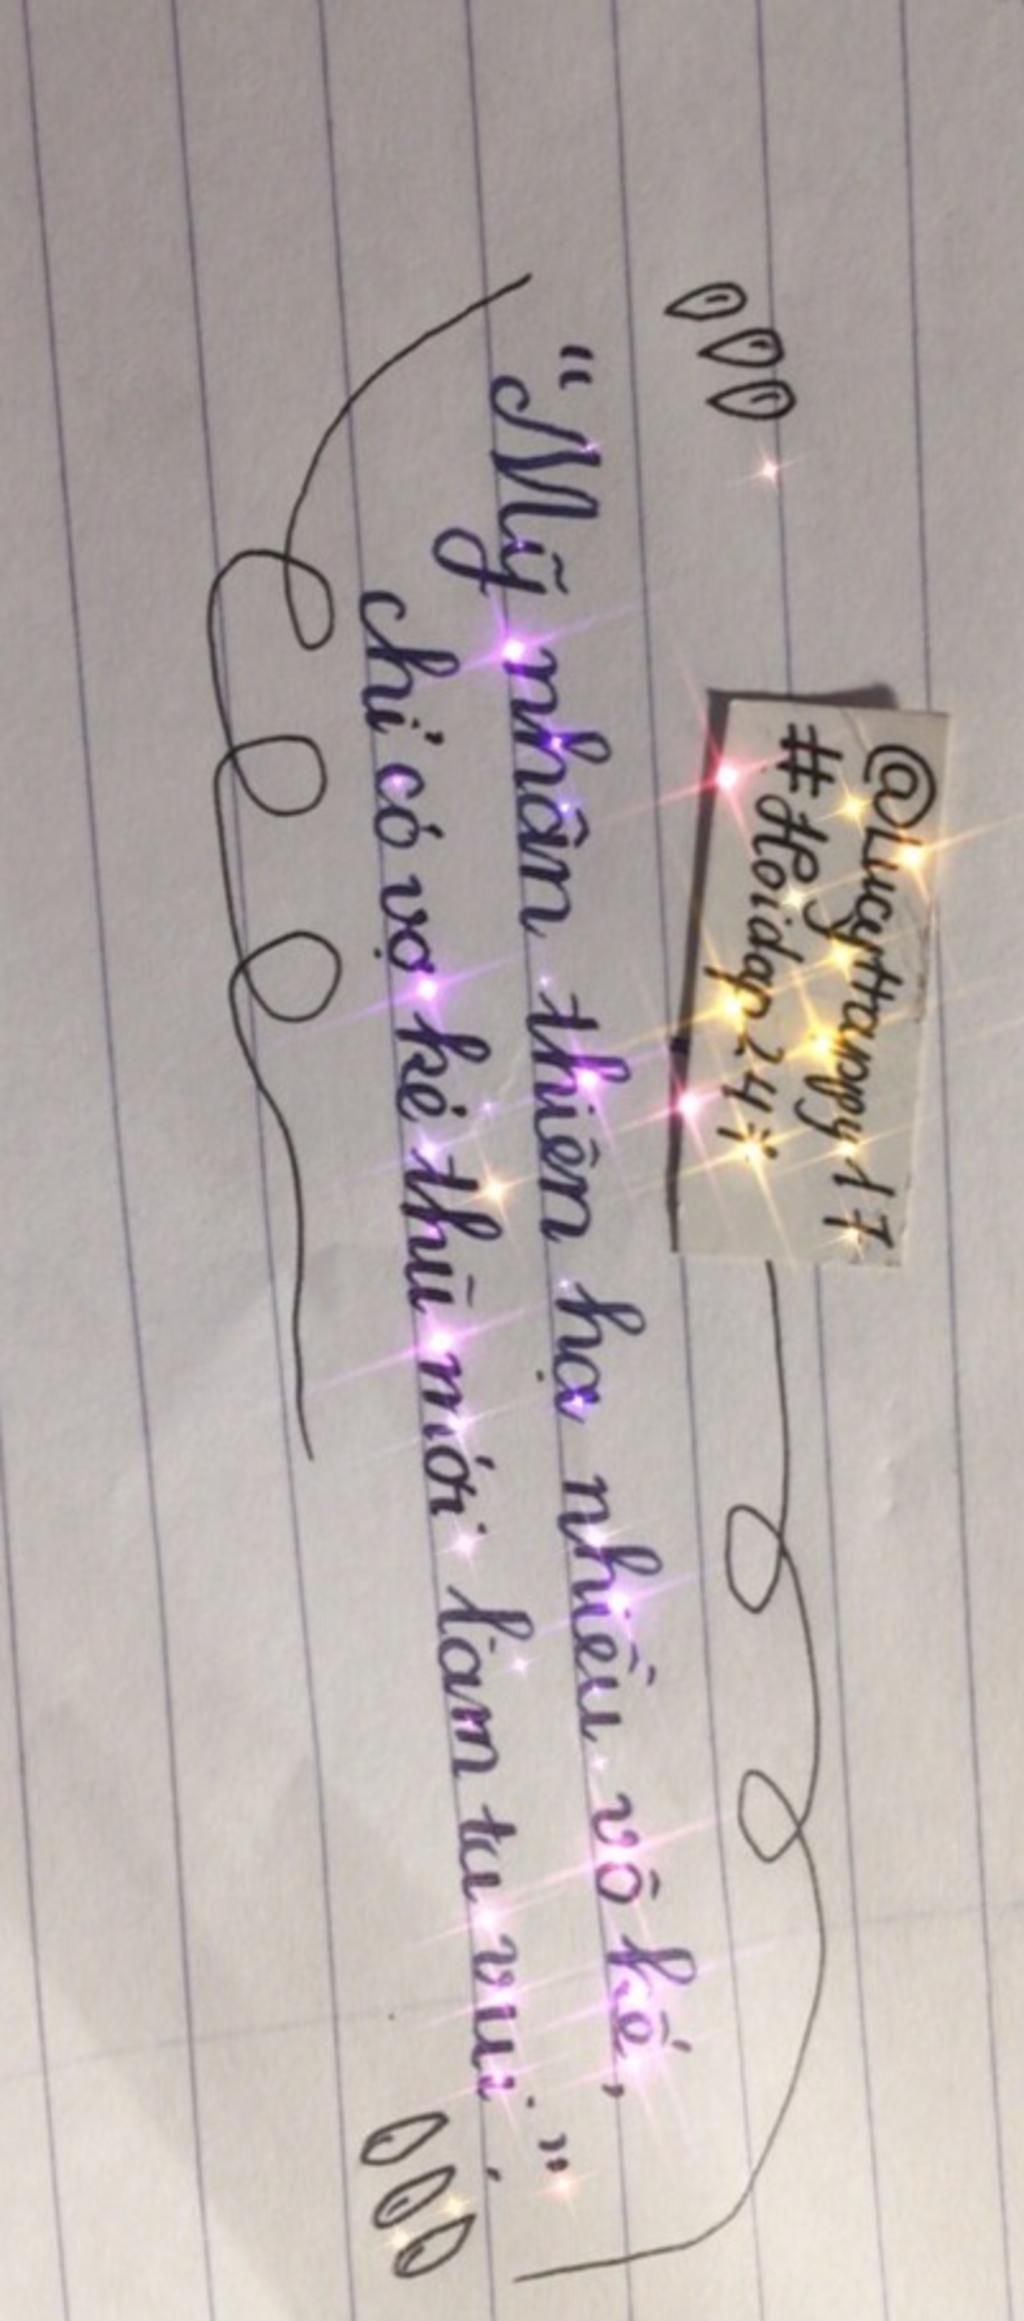 @Lucyttanpy17
#Hoidap247
"Mỹ nhân thiên hạ nhiều vô kể,
chỉ có vợ kẻ thù mới làm ta vui."